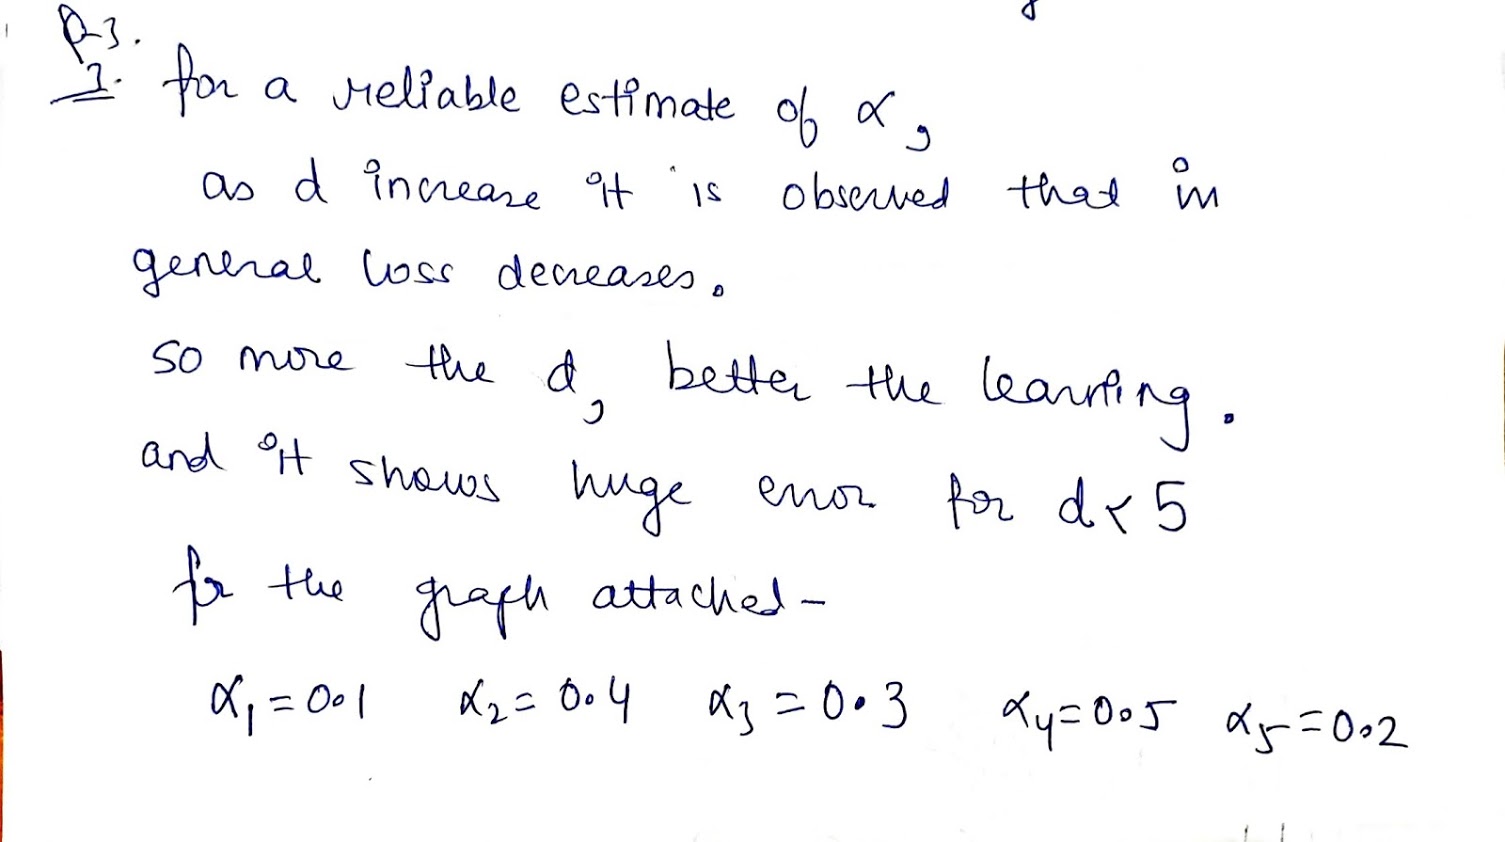 Q-3.
1. for a reliable estimate of α,
as d increase it is observed that in
general loss decreases.
so more the d, better the learning.
and it shows huge error for d < 5
for the graph attached -
α₁ = 0.1 α₂ = 0.4 α₃ = 0.3 α₄ = 0.5 α₅ = 0.2